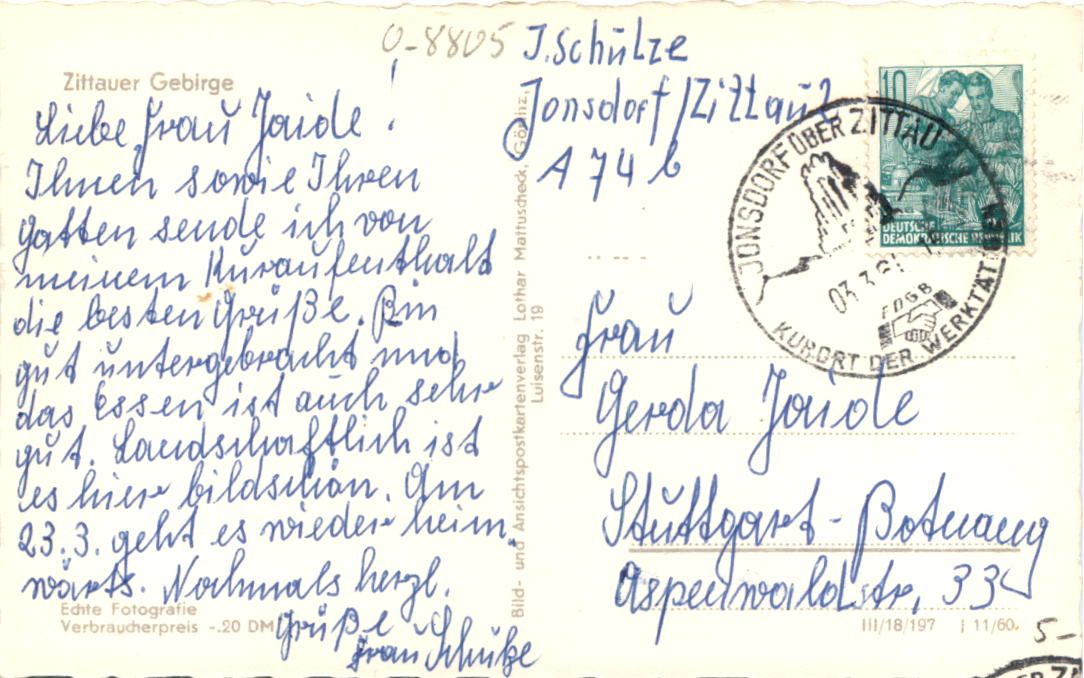 O-8805
J. Schulze
Jonsdorf/Zittau
A 74 b
Zittauer Gebirge
Liebe Frau Jaide!
Ihnen sowie Ihren
Gatten sende ich von
meinem Kuraufenthalt
die besten Grüße. Bin
gut untergebracht und
das Essen ist auch sehr
gut. Landschaftlich ist
es hier bildschön. Am
23.3. geht es wieder heim-
wärts. Nochmals herzl.
Grüße
Frau Schulze
Echte Fotografie
Verbraucherpreis -.20 DM
Bild- und Ansichtspostkartenverlag Lothar Mattuscheck, Görlitz,
Luisenstr. 19
10
DEUTSCHE
DEMOKRATISCHE REPUBLIK
JONSDORF ÜBER ZITTAU
03.3.61
FDGB
KURORT DER WERKTÄTIGEN
Frau
Gerda Jaide
Stuttgart-Botnang
Aspenwaldstr. 33
III/18/197 J 11/60.
5-